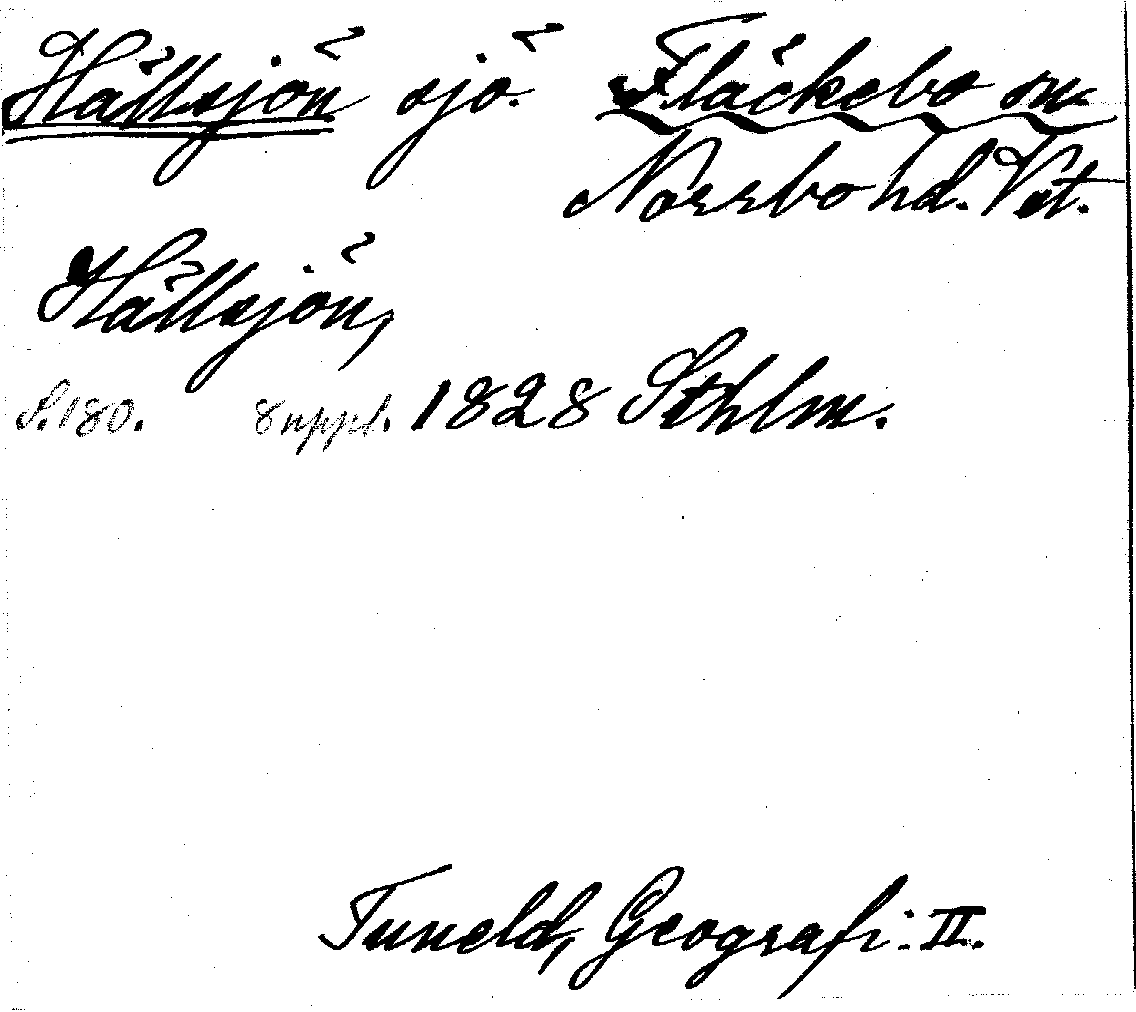 Hällsjön sjö. Fläckebo sn.
Norrbo hd. Vst.
Hällsjön,
S. 180. 8 uppl. 1828 Sthlm.
Tuneld, Geografi. II.